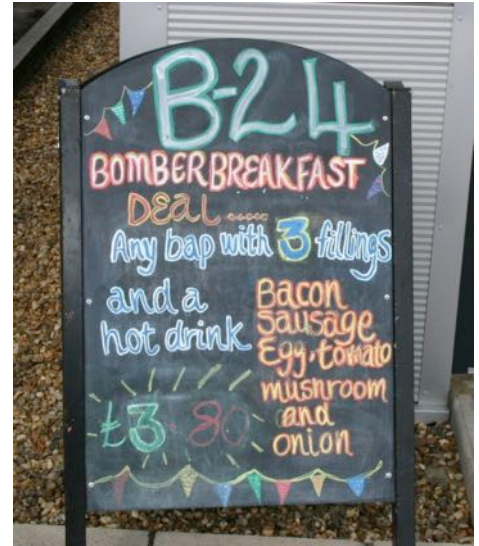 B-24
BOMBER BREAKFAST
DEAL.....
Any bap with 3 fillings
and a
hot drink
£3.80
Bacon
Sausage
Egg, tomato
mushroom
and
onion